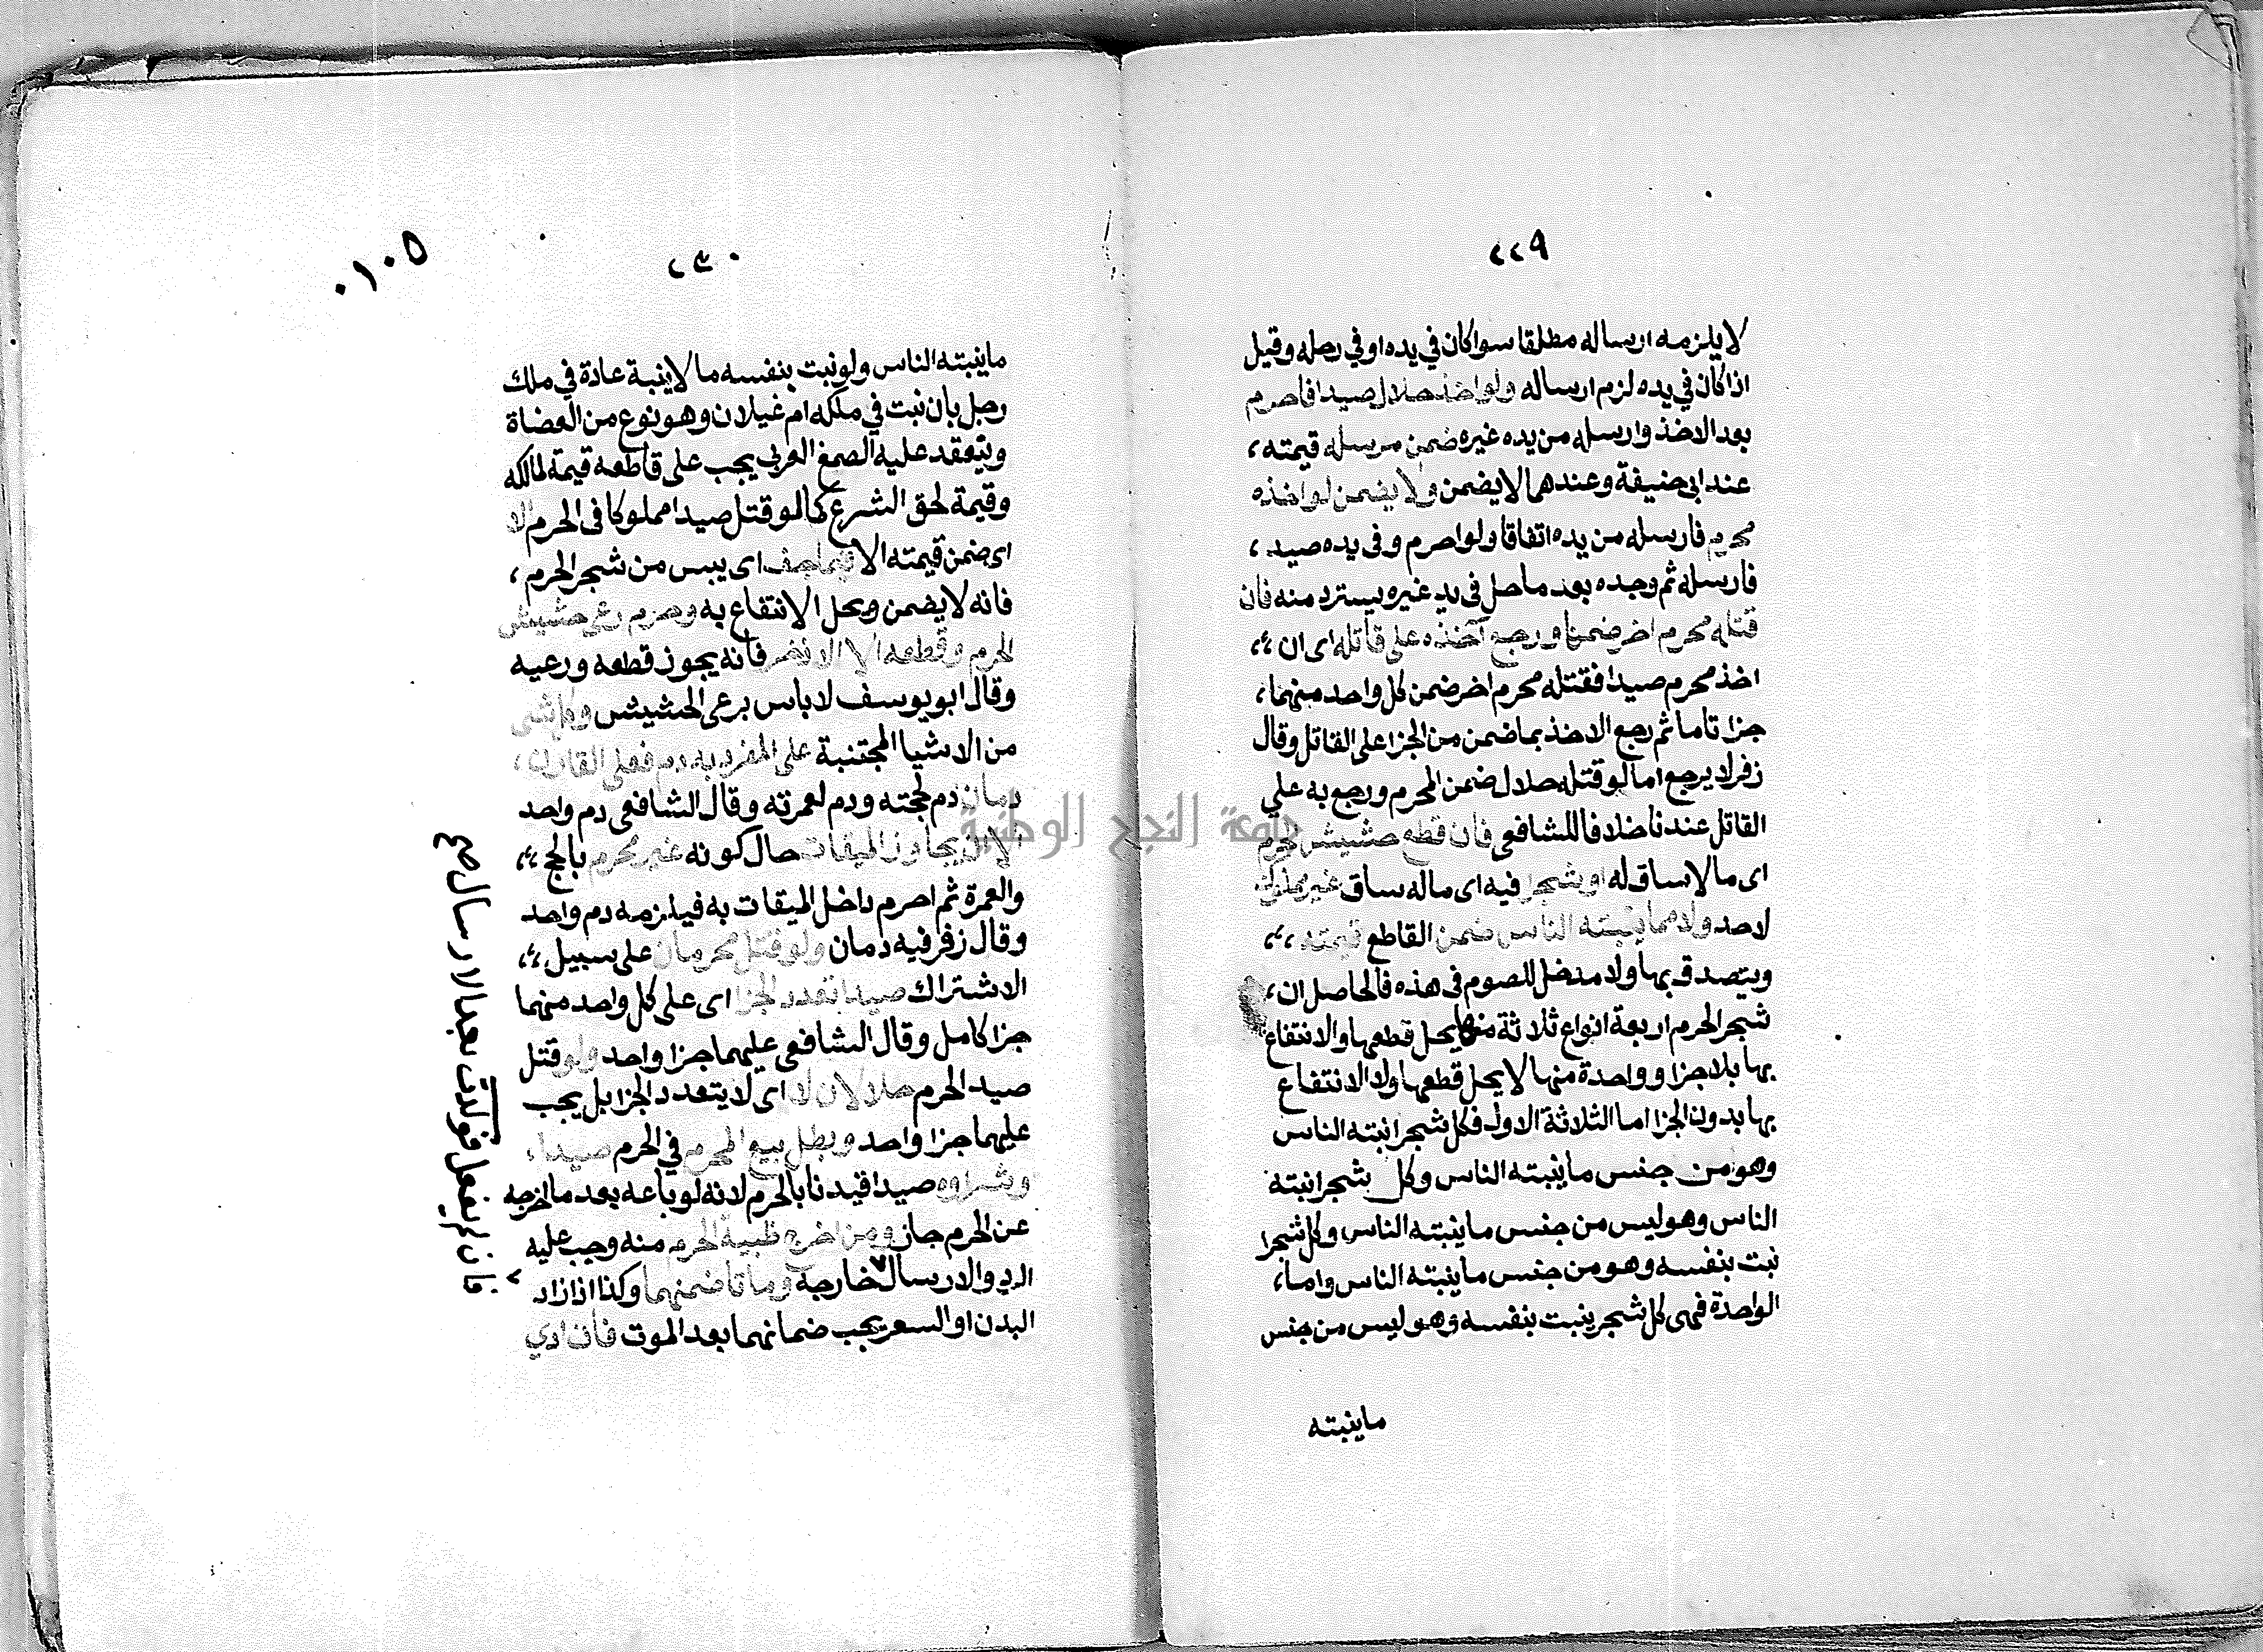 ٢٢٩
لا يلزمه ارساله مطلقا سوا كان في يده او في رحله وقيل
اذا كان في يده لزم ارساله ولو اخذ حلال صيدا فاحرم
بعد الاخذ وارسله من يده غيره ضمن مرسله قيمته،
عند ابي حنيفة وعندهما لا يضمن ولا يضمن لو اخذه
محرم فارسله من يده اتفاقا ولو احرم وفى يده صيد،
فارسله ثم وجده بعد ما حل فى يد غيره يسترد منه فان
قتله محرم اخر ضمنا ورجع آخذه على قاتله اى ان،،
اخذ محرم صيدا فقتله محرم اخر ضمن كل واحد منهما،
جزا تاما ثم رجع الاخذ بما ضمن من الجزا على القاتل وقال
زفر لا يرجع اما لو قتله حلال ضمن المحرم ورجع به علي
القاتل عندنا خلافا للشافعى فان قطع حشيش الحرم
اى ما لا ساق له او شجرا فيه اى ماله ساق غير مملوك
لاحد ولا مما ينبته الناس ضمن القاطع قيمته،،
ويتصدق بها ولا مدخل للصوم فى هذه فالحاصل ان،
شجر الحرم اربعة انواع ثلاثة منها يحل قطعها والانتفاع
بها بلا جزا وواحدة منها لا يحل قطعها ولا الانتفاع
بها بدون الجزا اما الثلاثة الاول فكل شجر انبته الناس
وهو من جنس ما ينبته الناس وكل شجر انبته
الناس وهو ليس من جنس ما ينبته الناس وكل شجرا
نبت بنفسه وهو من جنس ما ينبته الناس واما،
الواحدة فهى كل شجر ينبت بنفسه وهو ليس من جنس
ما ينبته
٢٣٠
٠١٠٥
ما ينبته الناس ولو نبت بنفسه ما لا ينبة عادة في ملك
رجل بان نبت في ملكه ام غيلان وهو نوع من العضاة
ويتعقد عليه الصمغ العربى يجب على قاطعه قيمة لمالكه
وقيمة لحق الشرع كما لو قتل صيدا مملوكا فى الحرم الا
اى ضمن قيمته الا فيما جف اى يبس من شجر الحرم،
فانه لا يضمن ويحل الانتفاع به وحرم رعى حشيش
الحرم وقطعه الا الاذخر فانه يجوز قطعه ورعيه
وقال ابو يوسف لا باس برعى الحشيش وكل شى
من الاشيا المجتنبة على المفرد به دم فعلى القارن،
دمان دم لحجته ودم لعمرته وقال الشافعى دم واحد
الا ان يجاوز الميقات حال كونه غير محرم بالحج،،
والعمرة ثم احرم داخل الميقات به فيلزمه دم واحد
وقال زفر فيه دمان ولو قتل محرمان على سبيل،،
الاشتراك صيدا تعدد الجزا اى على كل واحد منهما
جزا كامل وقال الشافعى عليهما جزا واحد ولو قتل
صيد الحرم حلالان لا اى لا يتعدد الجزا بل يجب
عليهما جزا واحد وبطل بيع المحرم في الحرم صيدا،
وشراوه صيدا قيدنا بالحرم لانه لو باعه بعد ما اخرجه
عن الحرم جاز ومن اخرج ظبية الحرم منه وجب عليه
الرد والارسال خارجه وماتا ضمنهما وكذا اذا زاد
البدن او السعر يجب ضمانهما بعد الموت فان ادي
فان لم يفعل فولدت بعد الارسال صح
جامعة النجاح الوطنية